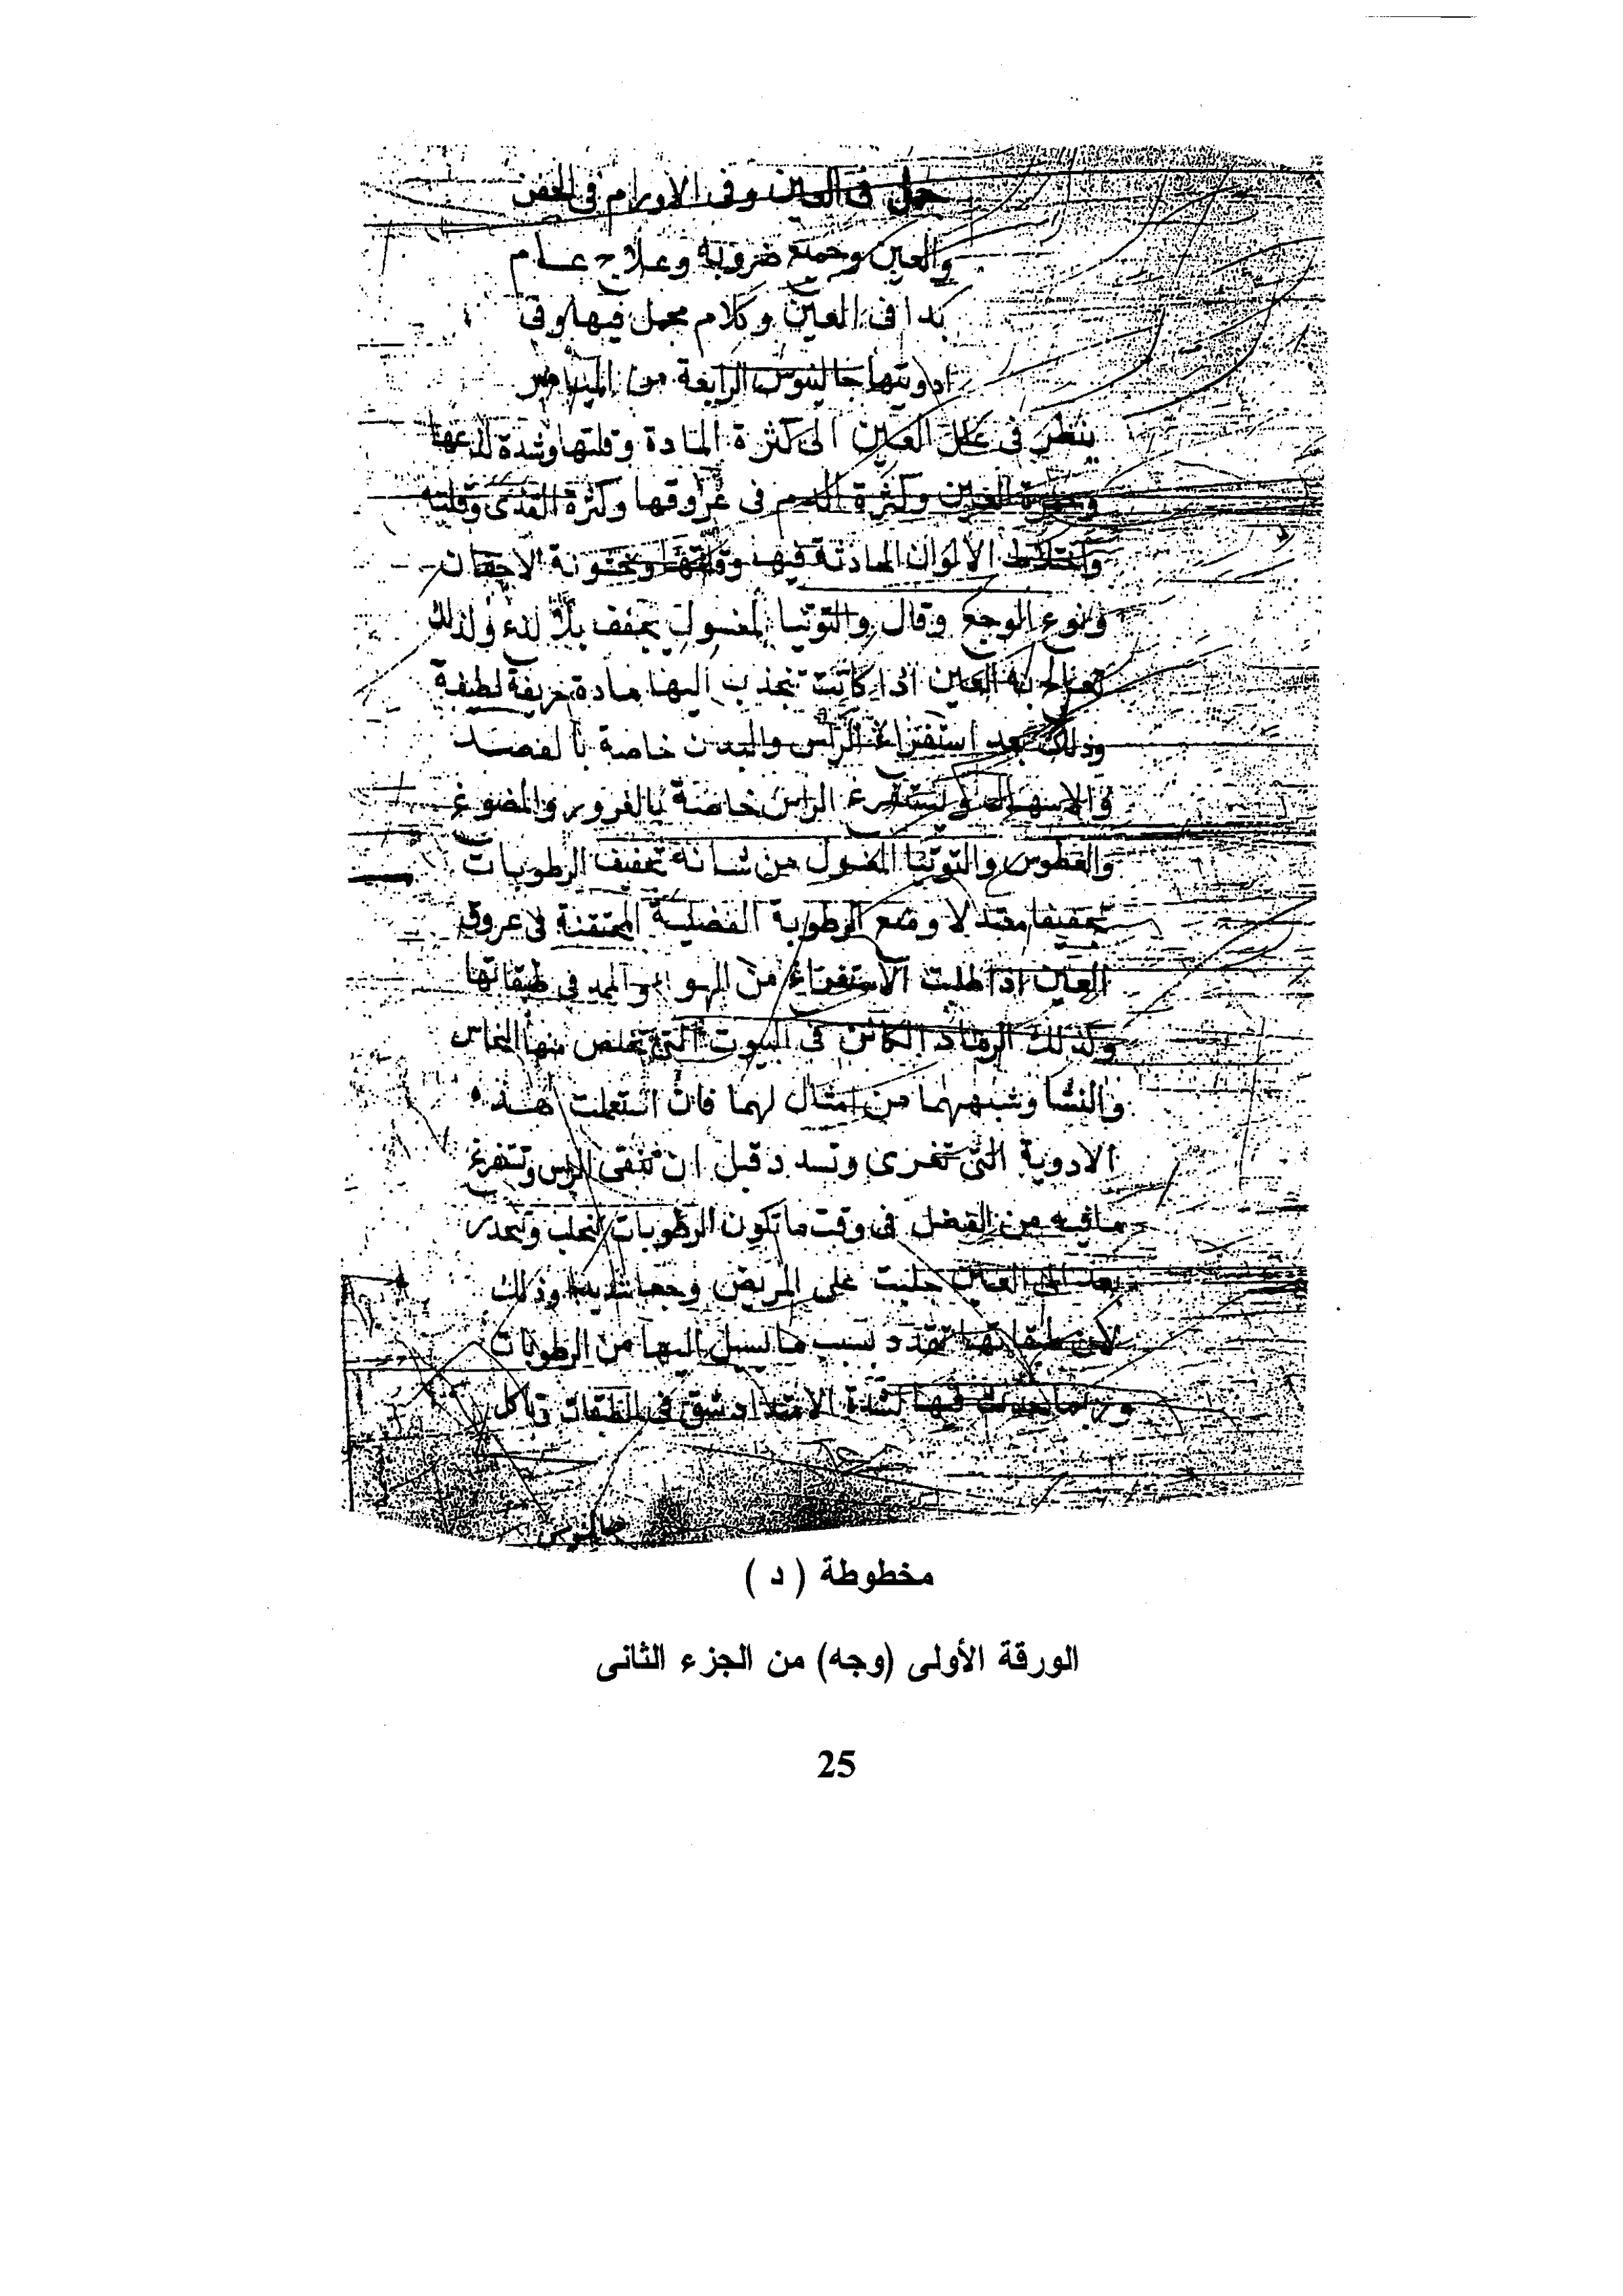 جمل فى العين وفى الاورام فى الجفن
والعين وجميع ضروبه وعلاج عام
بدا فى العين وكلام مجمل فيها وفى
ادويتها جالينوس الرابعة من الميامر
ينظر فى علل العين الى كثرة المادة وقلتها وشدة لذعها
وحمرة العين وكثرة الدم فى عروقها وكثرة القذى وقلته
واختلاط الالوان الحادثة فيها وقلتها وخشونة الاجفان
ونوع الوجع وقال والتوتيا المغسول يجفف بلا لذع ولذلك
تعالج به العين اذا كانت تنجذب اليها مادة حريفة لطيفة
وذلك بعد استفراغ الراس والبدن خاصة بالفصد
والاسهال ويستفرغ الراس خاصة بالغرور والمضوغ
والعطوس والتوتيا المغسول من شانه تجفيف الرطوبات
تجفيفا معتدلا ومنع الرطوبة الفضلية المحتقنة فى عروق
العين اذا طلبت الاستفراغ من المد فى طبقاتها
وكذلك الرماد الكائن فى البيوت التى يخلص منها النحاس
والنشا وشبههما من امثال لهما فان استعملت هذه
الادوية التى تغرى وتسدد قبل ان تنقى الراس وتستفرغ
ما فيه من الفضل فى وقت ما تكون الرطوبات تتحلب وتنحدر
بعد الى العين جلبت على المريض وجعا شديدا وذلك
لان طبقاتها تتمدد بسبب ما يسيل اليها من الرطوبات
وربما يحدث فيها لشدة الامتداد شق فى الطبقات وتاكل
جالينوس
مخطوطة ( د )
الورقة الأولى (وجه) من الجزء الثانى
25